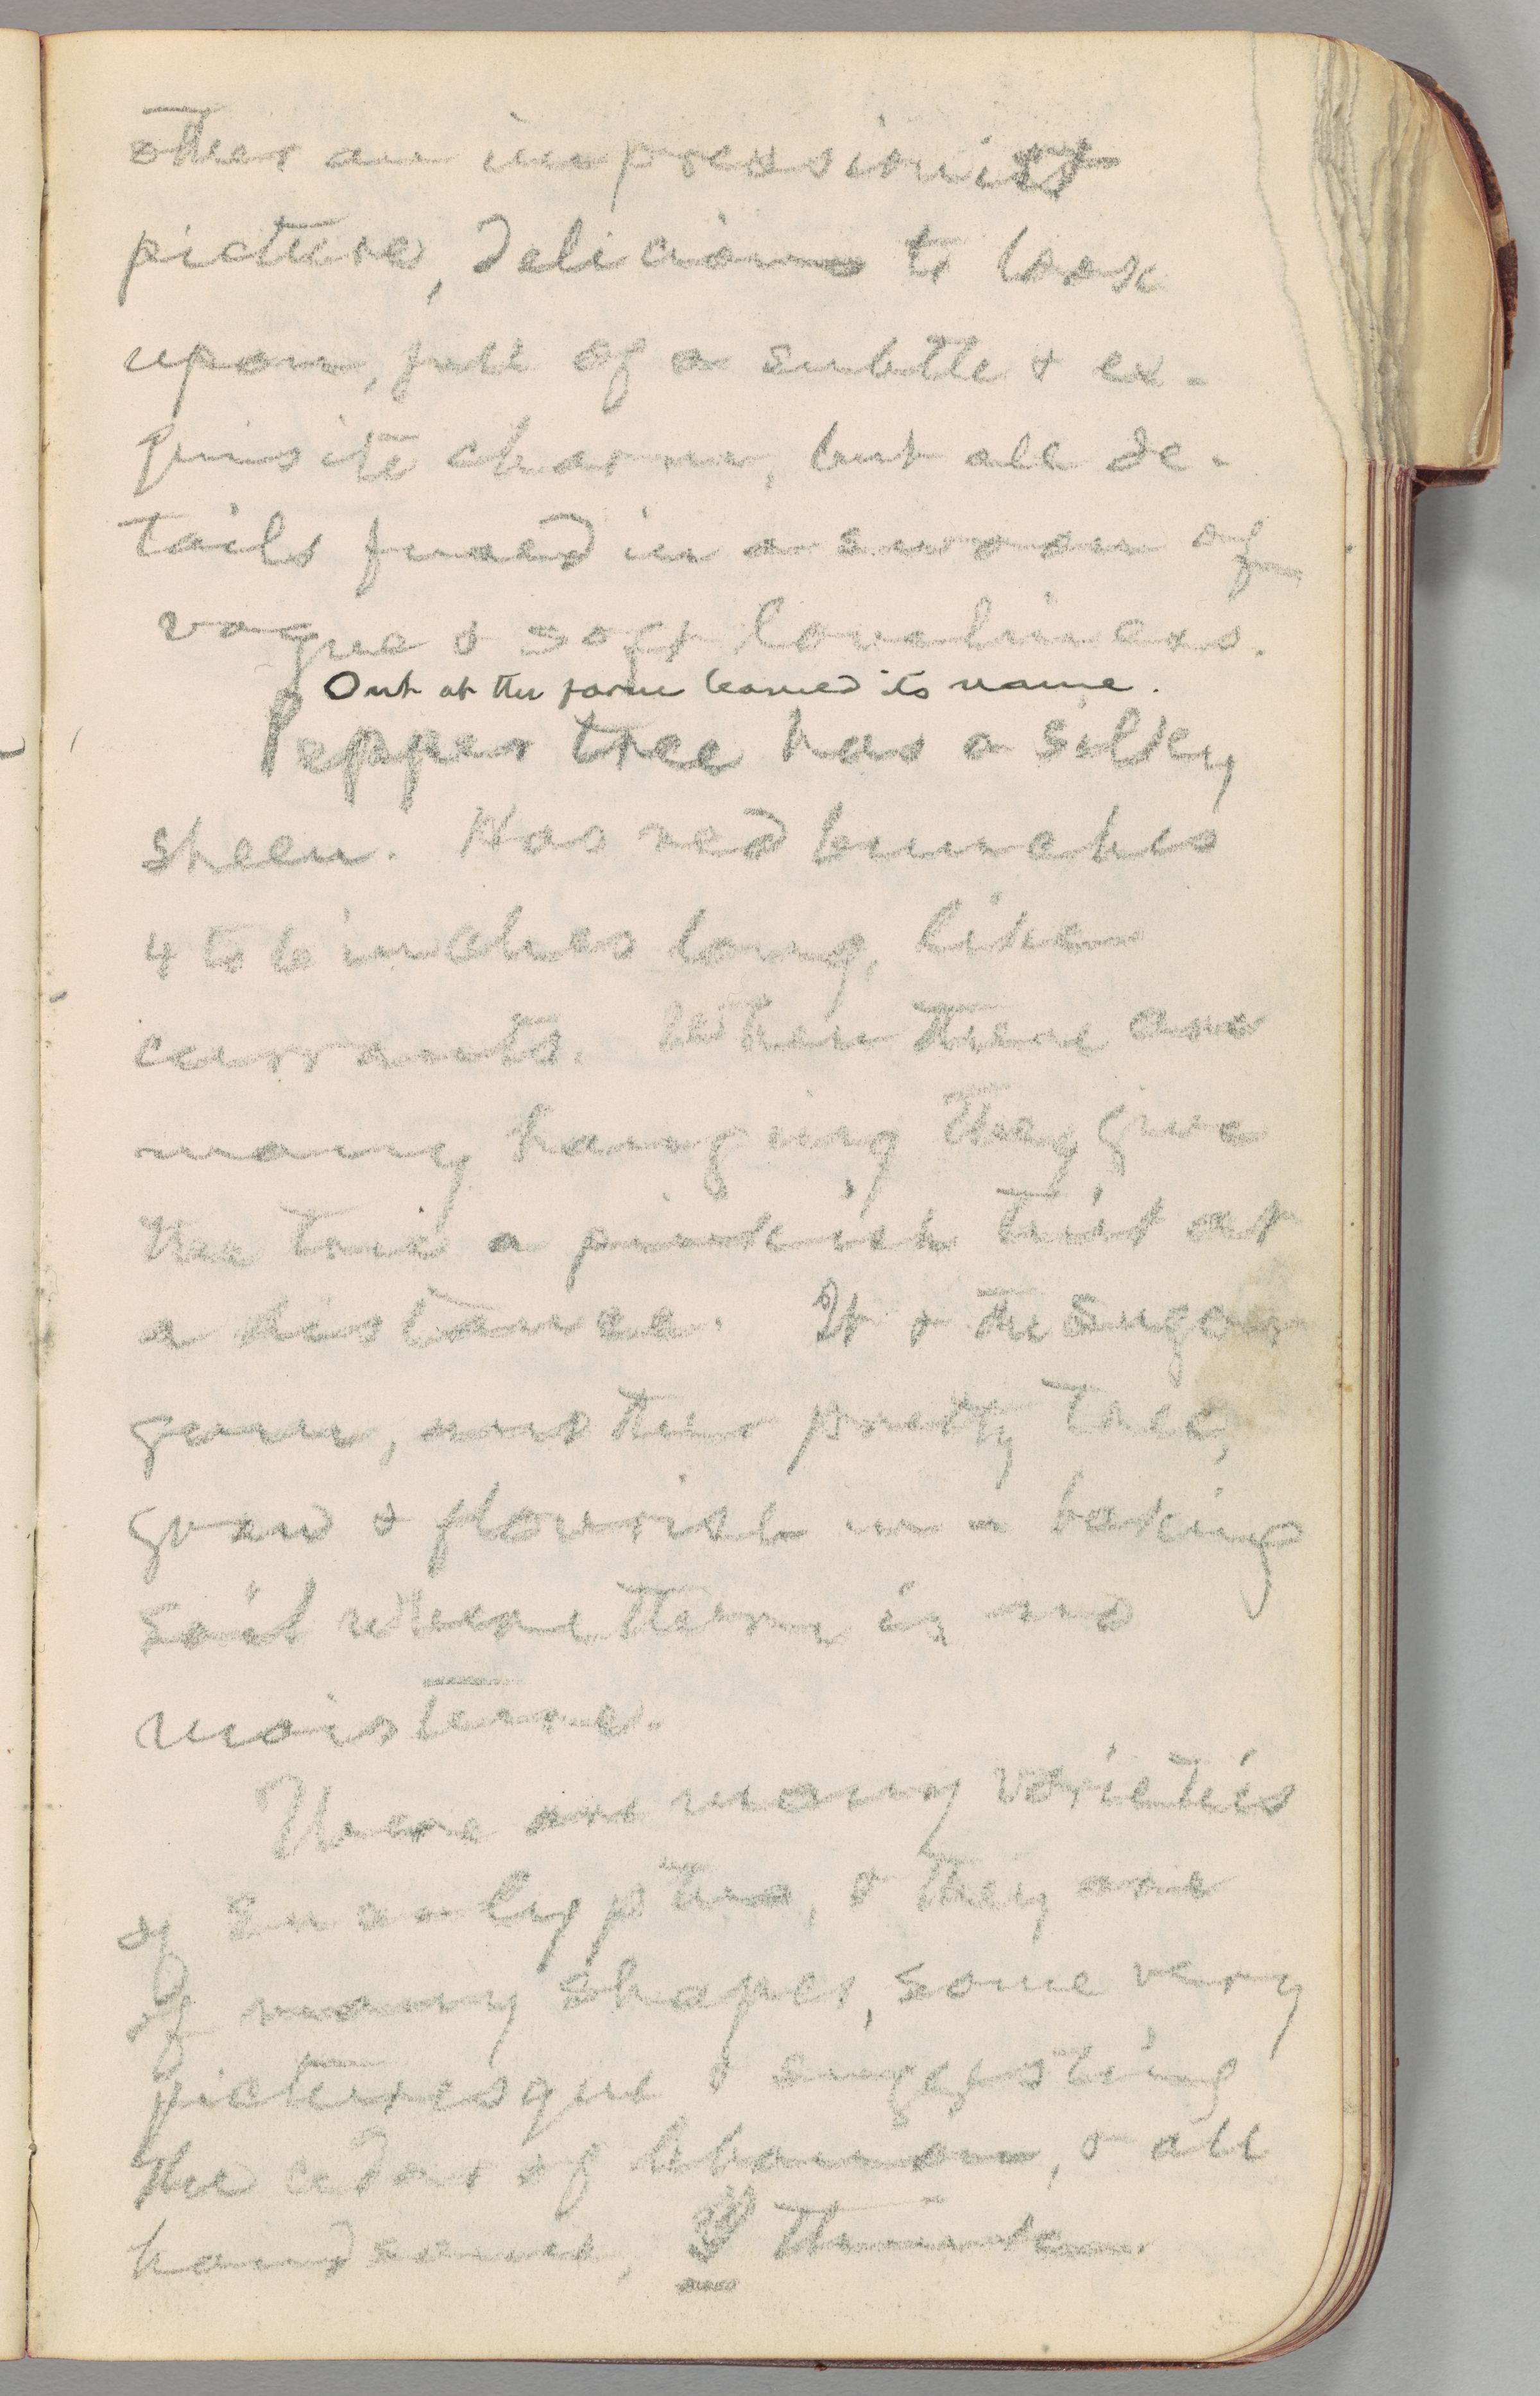 other an impressionist
picture, delicious to look
upon, full of a subtle & ex-
quisite charm, but all de-
tails fused in a swoon of
vague & soft loveliness.
Out at the farm learned its name.
Pepper tree has a silky
sheen. Has red bunches
4 to 6 inches long, like
currants. When there are
many hanging they give
the tree a pinkish tint at
a distance. It & the Sugar
gum, another pretty tree,
grow & flourish in a baking
soil where there is no
moisture.
There are many varieties
of eucalyptus, & they are
of many shapes, some very
picturesque & suggesting
the cedars of Lebanon, & all
handsome, I think.